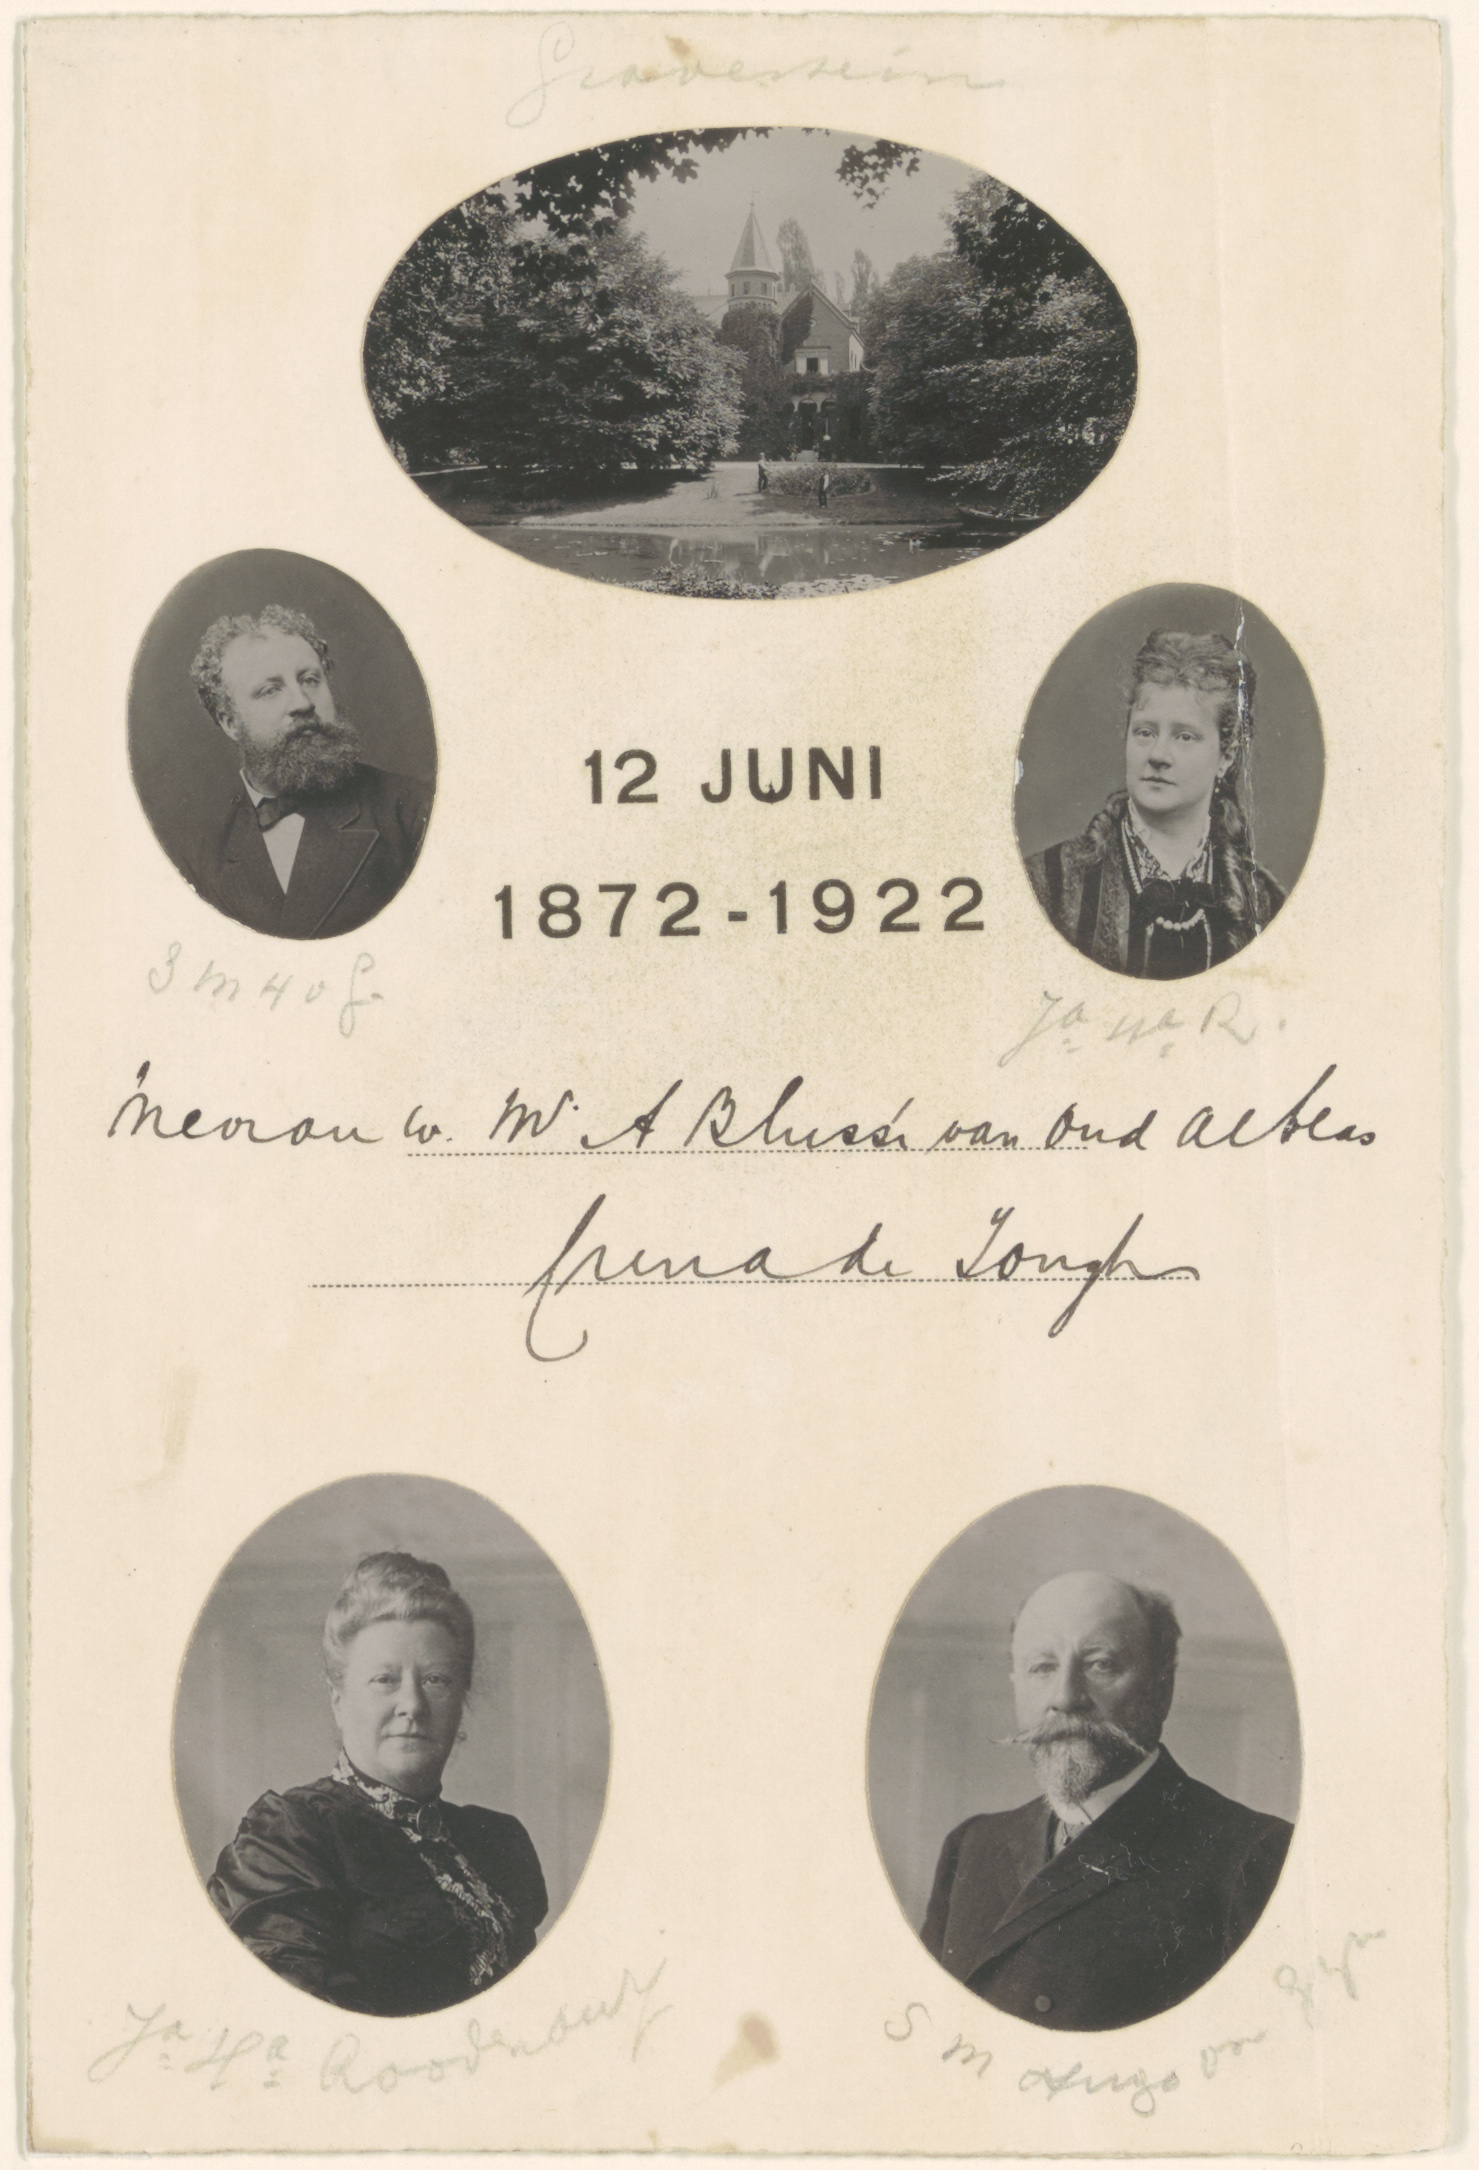 Gravestein
12 JUNI
1872-1922
S M H v G.
Ja Ha R.
Mevrouw. Wd. A Blussé van Oud Alblas
Crena de Iongh
Ja Ha Roodenburg
S M Hugo van Gijn